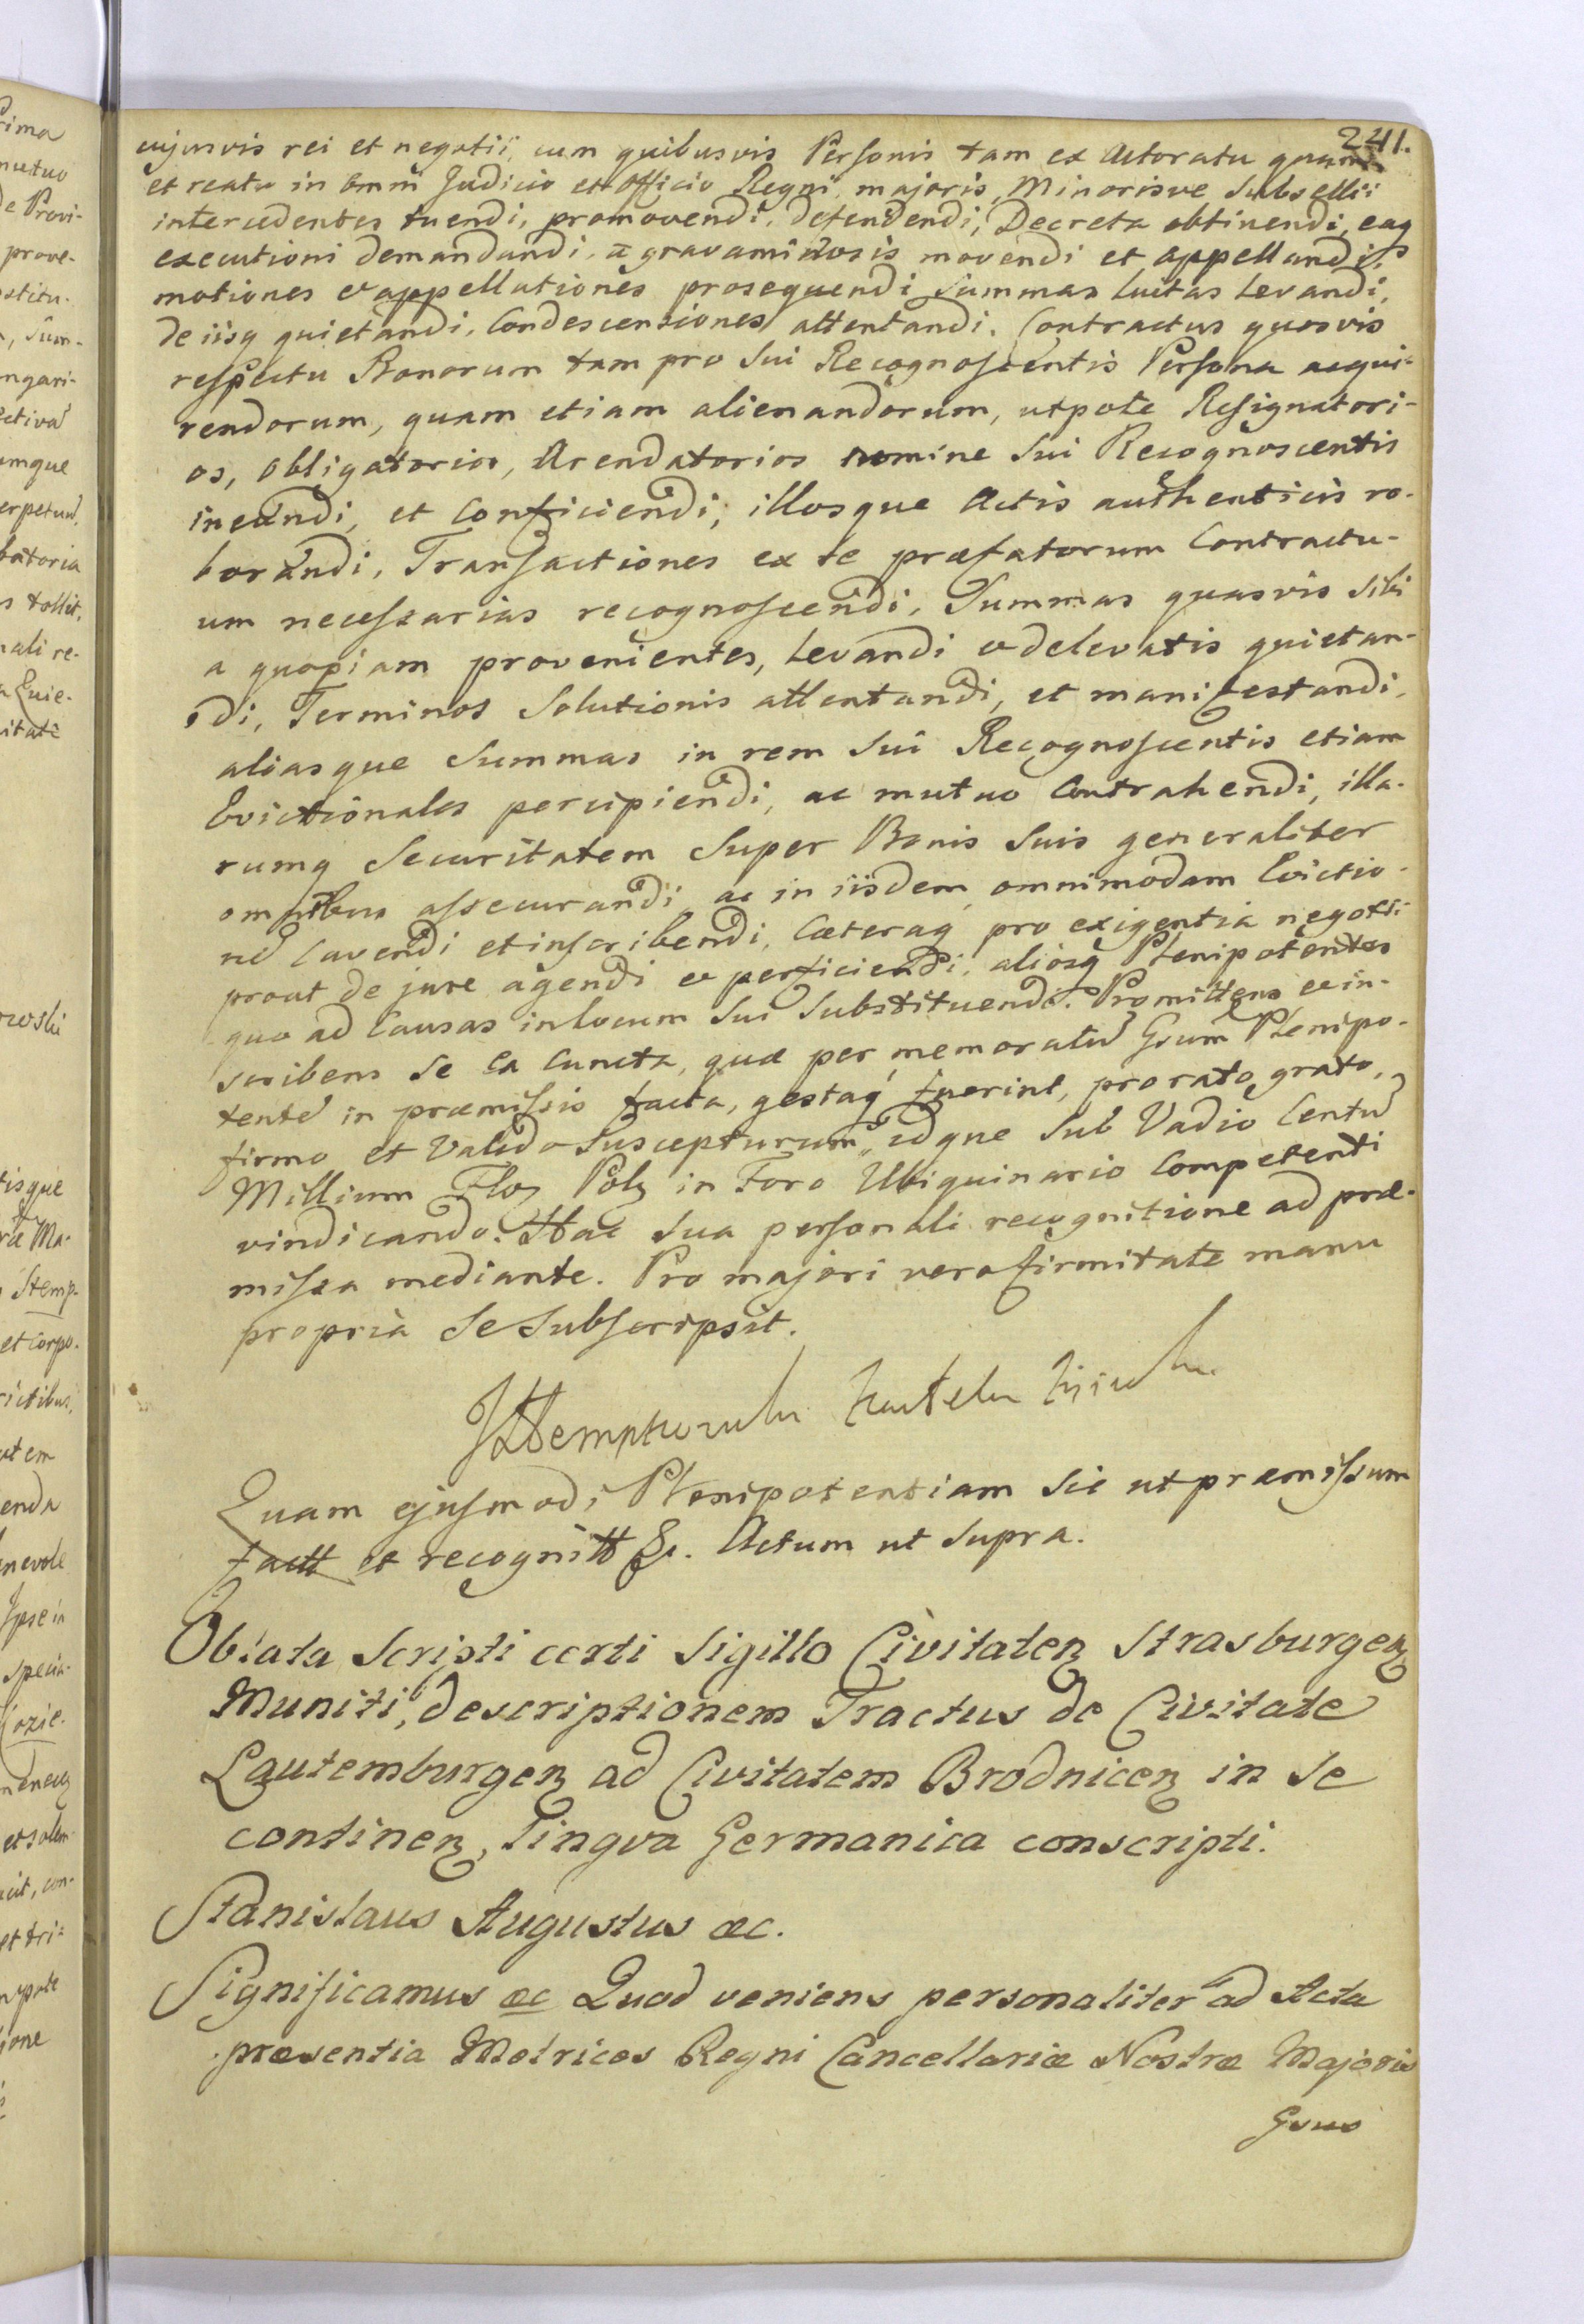 241.
cujusvis rei et negotii, cum quibusvis Personis tam ex Actoratu quam
et reatu in omni Judicio et Officio Regni, majoris, Minorisve Subsellii
intercedentes tuendi, promovendi, defendendi, Decreta obtinendi, eaq
executioni demandandi, a gravaminosis movendi et appellandi,
motiones et appellationes prosequendi Summas luitas levandi,
de iisq quietandi, Condescensiones attentandi, Contractus quosvis
respectu Bonorum tam pro sui Recognoscentis Persona acqui-
rendorum, quam etiam alienandorum, utpote Resignatori-
os, obligatorios, Arendatorios nomine sui Recognoscentis
ineundi, et Conficiendi, illosque Actis authenticis ro-
borandi, Transactiones ex re præfatorum Contractu-
um necessarias recognoscendi, Summas quasvis sibi
a quopiam provenientes, levandi et de levatis quietan-
di, Terminos Solutionis attentandi, et manifestandi,
aliasque Summas in rem sui Recognoscentis etiam
Evictionales percipiendi, ac mutuo Contrahendi, illa-
rumq Securitatem Super Bonis suis generaliter
omnibus assecurandi, ac in iisdem omnimodam Evictio-
nem Cavendi et inscribendi, Cæteraq pro exigentia negotii
prout de jure agendi et perficiendi, aliosq Plenipotentes
quo ad Causas in locum sui Substituendi. Promittens et in-
scribens Se ea cuncta, quæ per memoratum Gsum Plenipo-
tentem in præmissis facta, gestaq fuerint, pro rato, grato,
firmo et Valido Suscepturum, idque Sub Vadio Centum
Millium Floz Polz in Foro Ubiquinario Competenti
vindicando. Hac Sua personali recognitione ad præ-
missa mediante. Pro majori vero firmitate manu
propria Se Subscripsit.
Quam ejusmodi Plenipotentiam Sic ut præmissum
factt et recognitt &c. Actum ut Supra.
Oblata Scripti certi Sigillo Civitatenz Strasburgenz
Muniti, descriptionem Tractus de Civitate
Lautemburgenz ad Civitatem Brodnicenz in Se
continenz, Lingva Germanica conscripti.
Stanislaus Augustus æc.
Significamus æc Quod veniens personaliter ad Acta
præsentia Metrices Regni Cancellariæ Nostræ Majoris
Gsus